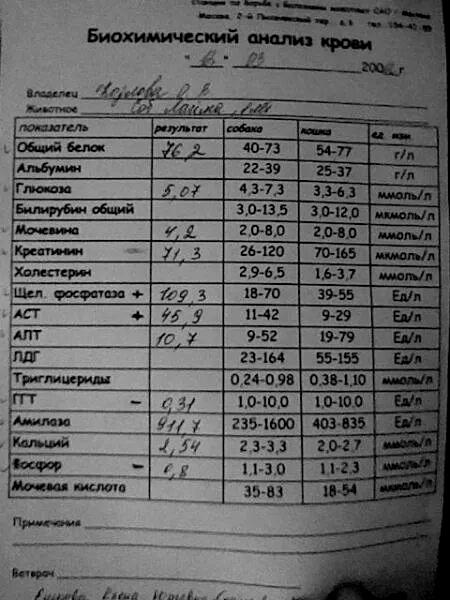 Станция по борьбе с болезнями животных САО г. Москва
Москва, 2-й
Биохимический анализ крови
" 13 " 03 200 г
Владелец Козлова О. В.
Животное Соб Лайка,
показатель результат собака кошка ед. изм.
Общий белок 76,2 40-73 54-77 г/л
Альбумин 22-39 25-37 г/л
Глюкоза 5,07 4,3-7,3 3,3-6,3 ммоль/л
Билирубин общий 3,0-13,5 3,0-12,0 мкмоль/л
Мочевина 4,2 2,0-8,0 2,0-8,0 ммоль/л
Креатинин 71,3 26-120 70-165 мкмоль/л
Холестерин 2,9-6,5 1,6-3,7 ммоль/л
Щел. фосфатаза + 109,3 18-70 39-55 Ед/л
АСТ + 45,9 11-42 9-29 Ед/л
АЛТ 10,7 9-52 19-79 Ед/л
ЛДГ 23-164 55-155 Ед/л
Триглицериды 0,24-0,98 0,38-1,10 ммоль/л
ГГТ - 0,31 1,0-10,0 1,0-10,0 Ед/л
Амилаза 911,7 235-1600 403-835 Ед/л
Кальций 2,54 2,3-3,3 2,0-2,7 ммоль/л
Фосфор - 0,8 1,1-3,0 1,1-2,3 ммоль/л
Мочевая кислота 35-83 18-54 мкмоль/л
Примечания
Ветврач
Елена Юрьевна